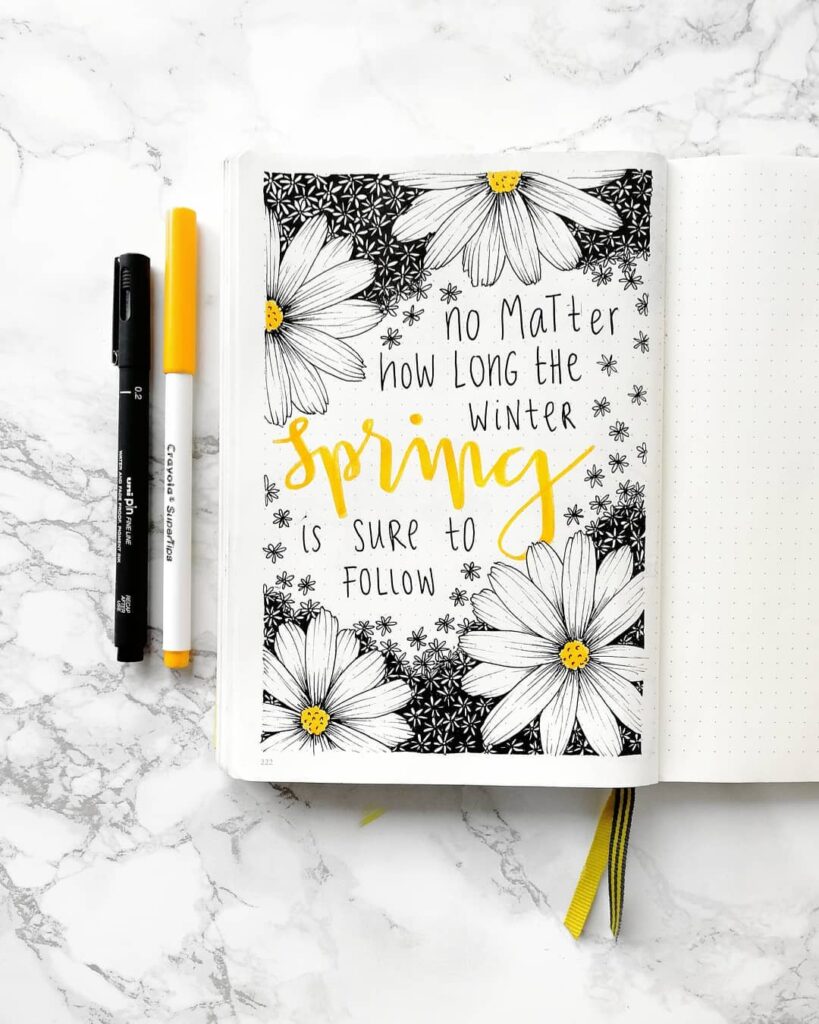 no MaTTer
how LONG the
WiNTER
Spring
is SURE to
FOLLOW
222
0.2
uni pin FINE LINE
WATER AND FADE PROOF, PIGMENT INK
RECAP
AFTER
USE
Crayola® SuperTips